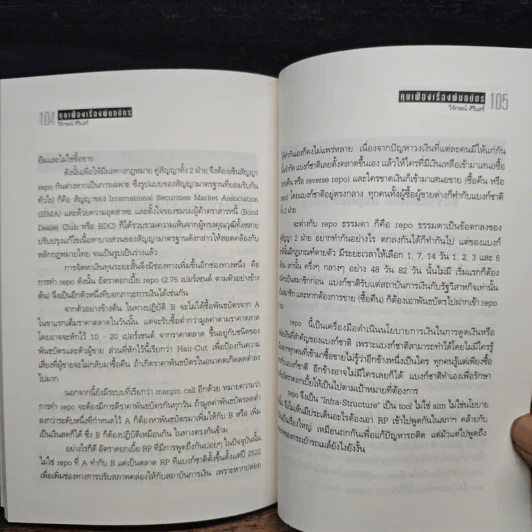 104 คุยเฟื่องเรื่องพันธบัตร
วิจักษณ์ ศิริแสร์
ยืมและไม่ใช่ซื้อขาย
ดังนั้นเพื่อให้มีผลทางกฎหมาย คู่สัญญาทั้ง 2 ฝ่าย จึงต้องเซ็นสัญญา
repo กันต่างสถานะเป็นการเฉพาะ ซึ่งรูปแบบของสัญญามาตรฐานที่ยอมรับกัน
ทั่วไป ก็คือ สัญญาของ International Securities Market Association
(ISMA) และด้วยความอุตสาหะ และตั้งใจของชมรมผู้ค้าตราสารหนี้ (Bond
Dealer Club หรือ BDC) ก็ได้รวบรวมความเห็นจากผู้ทรงคุณวุฒิทั้งหลาย
ปรับปรุงแก้ไขเนื้อหาบางส่วนของสัญญามาตรฐานดังกล่าวให้สอดคล้องกับ
หลักกฎหมายไทย จนเป็นรูปเป็นร่างแล้ว
การจัดหาเงินทุนระยะสั้นจึงมีช่องทางเพิ่มขึ้นอีกช่องทางหนึ่ง คือ
การทำ repo ดังนั้น อัตราดอกเบี้ย repo (2.75 เปอร์เซนต์ ตามตัวอย่างข้าง
ต้น) จึงเป็นอีกตัวหนึ่งที่บอกภาวะการเงินได้เช่นกัน
จากตัวอย่างข้างต้น ในทางปฏิบัติ B จะไม่ได้ซื้อพันธบัตรจาก A
ในราคาเต็มราคาตลาดในวันนั้น แต่จะรับซื้อต่ำกว่ามูลค่าตามราคาตลาด
โดยอาจจะหักไว้ 10 - 20 เปอร์เซนต์ จากราคาตลาด ขึ้นอยู่กับชนิดของ
พันธบัตรและตัวผู้ขาย ส่วนที่หักไว้นี้เรียกว่า Hair-Cut เพื่อป้องกันความ
เสี่ยงที่ผู้ขายจะไม่กลับมาซื้อคืน ถ้าเกิดราคาพันธบัตรในอนาคตเกิดลดต่ำลง
ไปมาก
นอกจากนี้ยังมีระบบที่เรียกว่า margin call อีกด้วย หมายความว่า
การทำ repo จะต้องมีการตีราคาพันธบัตรกันทุกวัน ถ้ามูลค่าพันธบัตรลดต่ำ
ลงกว่าระดับหนึ่งที่กำหนดไว้ A ก็ต้องหาพันธบัตรมาเพิ่มให้กับ B หรือ เพิ่ม
เป็นเงินสดก็ได้ ซึ่ง B ก็ต้องปฏิบัติเหมือนกัน ในทางตรงกันข้าม
อย่างไรก็ดี อัตราดอกเบี้ย RP ที่มีการพูดถึงกันบ่อยๆ ในปัจจุบันนั้น
ไม่ใช่ repo ที่ A ทำกับ B แต่เป็นตลาด RP ที่แบงก์ชาติตั้งขึ้นตั้งแต่ปี 2522
เพื่อเพิ่มช่องทางการปรับสภาพคล่องให้กับสถาบันการเงิน เพราะหากปล่อย
คุยเฟื่องเรื่องพันธบัตร 105
วิจักษณ์ ศิริแสร์
กันเองก็คงไม่แพร่หลาย เนื่องจากปัญหาวงเงินที่แต่ละคนมีให้แก่กัน
แบงก์ชาติเลยตั้งตลาดขึ้นเอง แล้วให้ใครที่มีเงินเหลือเข้ามาเสนอซื้อ
คืน หรือ reverse repo) และใครขาดเงินก็เข้ามาเสนอขาย (ซื้อคืน หรือ
โดยแบงก์ชาติอยู่ตรงกลาง ทุกคนทั้งผู้ซื้อผู้ขายต่างก็ทำกับแบงก์ชาติ
จะต่างกับ repo ธรรมดา ก็คือ repo ธรรมดาเป็นข้อตกลงของ
สัญญา 2 ฝ่าย อยากทำกันอย่างไร ตกลงกันได้ก็ทำกันไป แต่ของแบงก์
มีกฎเกณฑ์ตายตัว มีระยะเวลาให้เลือก 1, 7, 14 วัน 1, 2, 3 และ 6
เท่านั้น ครึ่งๆ กลางๆ อย่าง 48 วัน 82 วัน นั้นไม่มี เริ่มแรกก็ต้อง
เป็นสมาชิกก่อน แบงก์ชาติรับแต่สถาบันการเงินกับรัฐวิสาหกิจเท่านั้น
และหากต้องการขาย (ซื้อคืน) ก็ต้องเอาพันธบัตรไปฝากเข้า repo
repo นี้เป็นเครื่องมือดำเนินนโยบายการเงินในการดูดเงินหรือ
สำคัญของแบงก์ชาติ เพราะแบงก์ชาติสามารถทำได้โดยไม่มีใครรู้
ทุกคนที่เข้ามาซื้อขายไม่รู้ว่าอีกข้างหนึ่งเป็นใคร ทุกคนรู้แต่เพียงซื้อ
อีกข้างอาจไม่มีใครเลยก็ได้ แบงก์ชาติทำเองเพื่อรักษา
อัตราดอกเบี้ยให้เป็นไปตามเป้าหมายที่ต้องการ
repo จึงเป็น "Infra-Structure" เป็น tool ไม่ใช่ aim ไม่ใช่นโยบาย
จึงไม่เห็นมีประเด็นอะไรต้องเอา RP เข้าไปพูดกันในสภาฯ คล้ายกับ
เป็นเรื่องใหญ่ เหมือนถกกันเพื่อแก้ปัญหารถติด แต่มัวแต่ไปพูดถึง